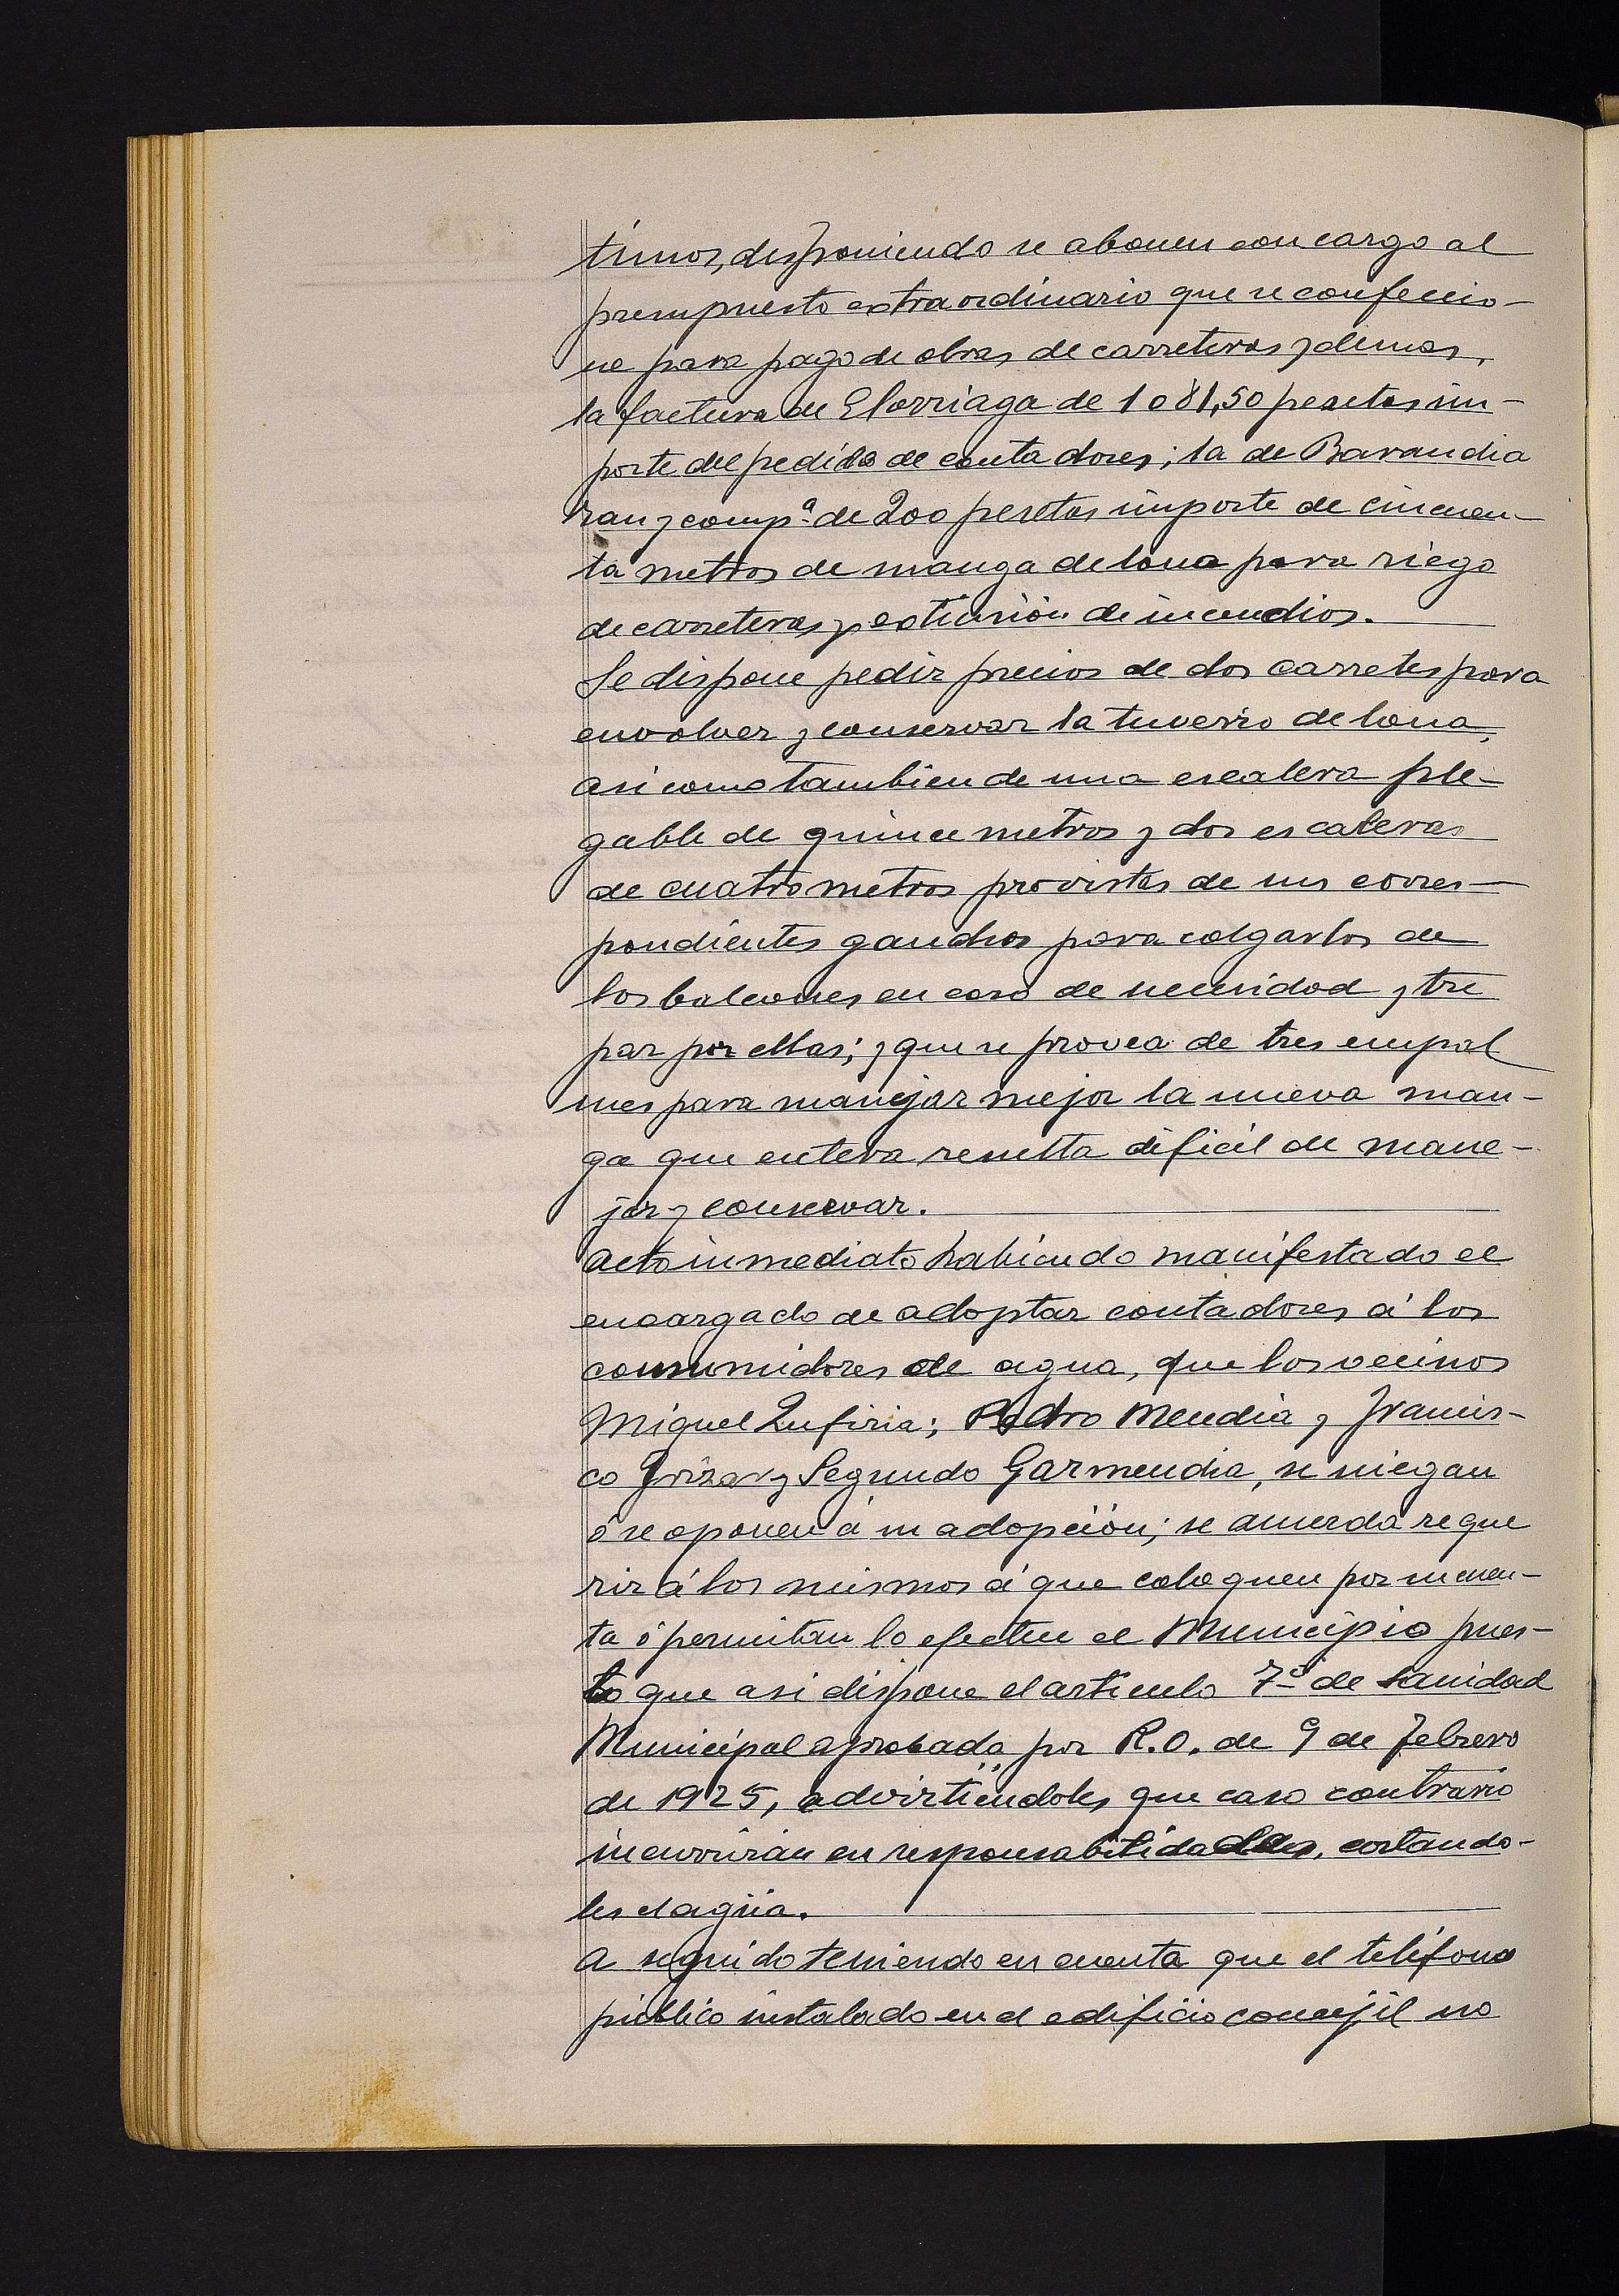 timos, disponiendo se abonen con cargo al
presupuesto extraordinario que se confeccio-
ne para pago de obras de carreteras y demas,
la factura de Elorriaga de 1081,50 pesetas im-
porte del pedido de contadores; la de Barandia
ran y compª. de 200 pesetas importe de cincuen-
ta metros de manga de lona para riego
de carreteras y extinsión de incendios.
Se dispone pedir precios de dos carretes para
envolver y conservar la tuveria de lona,
asi como tambien de una escalera ple-
gable de quince metros y dos escaleras
de cuatro metros provistas de sus corres-
pondientes ganchos para colgarlos de
los balcones en caso de necesidad y tre
par por ellas; y que se provea de tres empal
mes para manejar mejor la nueva man-
ga que entera resulta dificil de mane-
jar y conservar.
Acto inmediato habiendo manifestado el
encargado de adoptar contadores á los
consumidores de agua, que los vecinos
Miguel Zufiria; Pedro Mendia y Francis-
co y Segundo Garmendia, se niegan
ó se oponen á su adopción; se acuerda reque
rir á los mismos á que coloquen por su cuen-
ta ó permitan lo efectue el Municipio pues-
to que asi dispone el articulo 7º de Sanidad
Municipal aprobada por R.O. de 9 de Febrero
de 1925, advirtiendoles que caso contrario
incurrirán en responsabilidades, cortando-
les el agua.
A seguido teniendo en cuenta que el teléfono
público instalado en el edificio concejil no